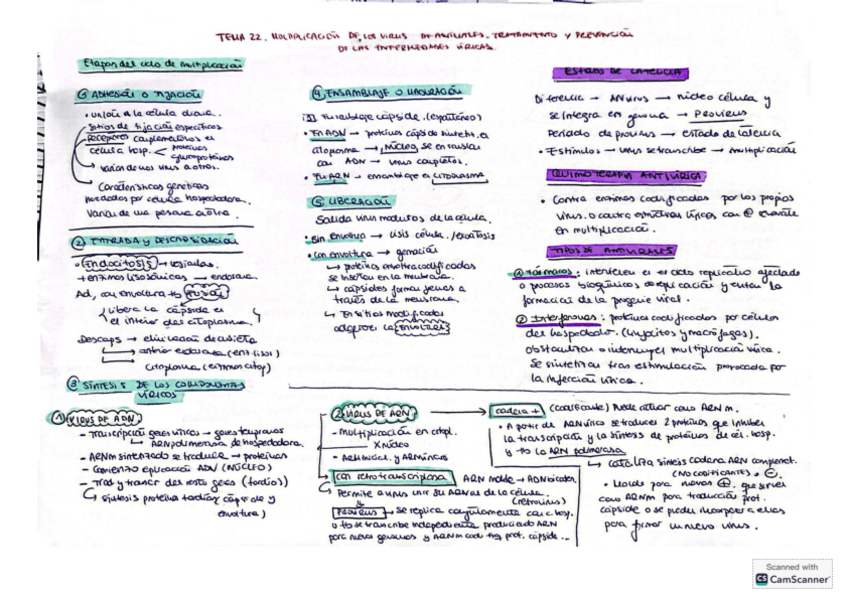 TEMA 22. MULTIPLICACIÓN DE LOS VIRUS DE ANIMALES. TRATAMIENTO Y PREVENCIÓN
DE LAS ENFERMEDADES VÍRICAS.
Etapas del ciclo de multiplicación
① ADHESIÓN O FIJACIÓN
• Unión a la célula diana.
Sitios de fijación específicos
Receptores complementarios en
célula hosp. → proteínas
glucoproteínas
→ varían de unos virus a otros.
→ Características genéticas
heredados por célula hospedadora.
Varían de una persona a otra.
② ENTRADA Y DESCAPSIDACIÓN
• Endocitosis → vesículas.
+ enzimas lisosómicas → endosoma.
Ad, con envoltura tb fusión
Libera la cápside en
el interior del citoplasma.
Descaps → eliminación de cápsida
→ anterior endosoma (enz. lisos)
→ citoplasma (enzimas citop)
③ SÍNTESIS DE LOS COMPONENTES
VÍRICOS
① VIRUS DE ADN
- Transcripción genes víricos → genes tempranos
↳ ARN polimerasa de hospedadora.
- ARNm sintetizado se traduce → proteínas
- Comienza replicación ADN (NÚCLEO)
- Trad y transcr del resto genes (tardío))
↳ síntesis proteína tardías (cápside y
envoltura)
④ ENSAMBLAJE O MADURACIÓN
Ensamblaje cápside. (espontáneo)
• En ADN → proteínas cápside sintetiz. en
citoplasma → Núcleo se ensamblan
con ADN → virus completos.
• En ARN → ensamblaje en CITOPLASMA
⑤ LIBERACIÓN
Salida virus maduros de la célula.
• Sin envoltura → lisis célula. / exocitosis
• Con envoltura → gemación
↳ proteínas envoltura codificadas
se insertan en la membrana.
↳ cápsides forman yemas a
través de la membrana.
↳ En sitios modificados
adquiere la envoltura
② VIRUS DE ARN
- Multiplicación en citopl.
X núcleo
↳ con retrotranscriptasa ARN molde → ADN bicaten.
↳ Permite a virus unir su ARN al de la célula.
(retrovirus)
PROVIRUS → Se replica conjuntamente con c. hosp.
o tb se transcribe independiente produciendo ARN
para nuevos genomas y ARNm codifiq prot. cápside...
ESTADO DE LATENCIA
Diferencia → ADN virus → núcleo célula y
se integra en genoma → PROVIRUS
Periodo de provirus → estado de latencia
• Estímulos → virus se transcribe → multiplicación
QUIMIOTERAPIA ANTIVÍRICA
• Contra enzimas codificados por los propios
virus. o contra estructuras víricas
en multiplicación.
TIPOS DE ANTIVIRALES
① Fármacos: interfieren en el ciclo replicativo afectando
a procesos bioquímicos de replicación y evitan la
formación de la progenie viral.
② Interferones: proteínas codificados por células
del hospedador. (linfocitos y macrófagos).
obstaculizan o interrumpen multiplicación vírica.
Se sintetizan tras estimulación provocada por
la infección vírica.
cadena + (codificante) Puede actuar como ARNm.
• A partir de ARN vírico se traducen 2 proteínas que inhiben
la transcripción y la síntesis de proteínas de cél. hosp.
y tb la ARN polimerasa
↳ cataliza síntesis cadena ARN complement.
(NO codificantes) • ⊖.
• Molde para nuevas ⊕. que sirven
como ARNm para traducción prot.
cápside o se pueden incorporar a ellas
para formar un nuevo virus.
Scanned with
CS CamScanner